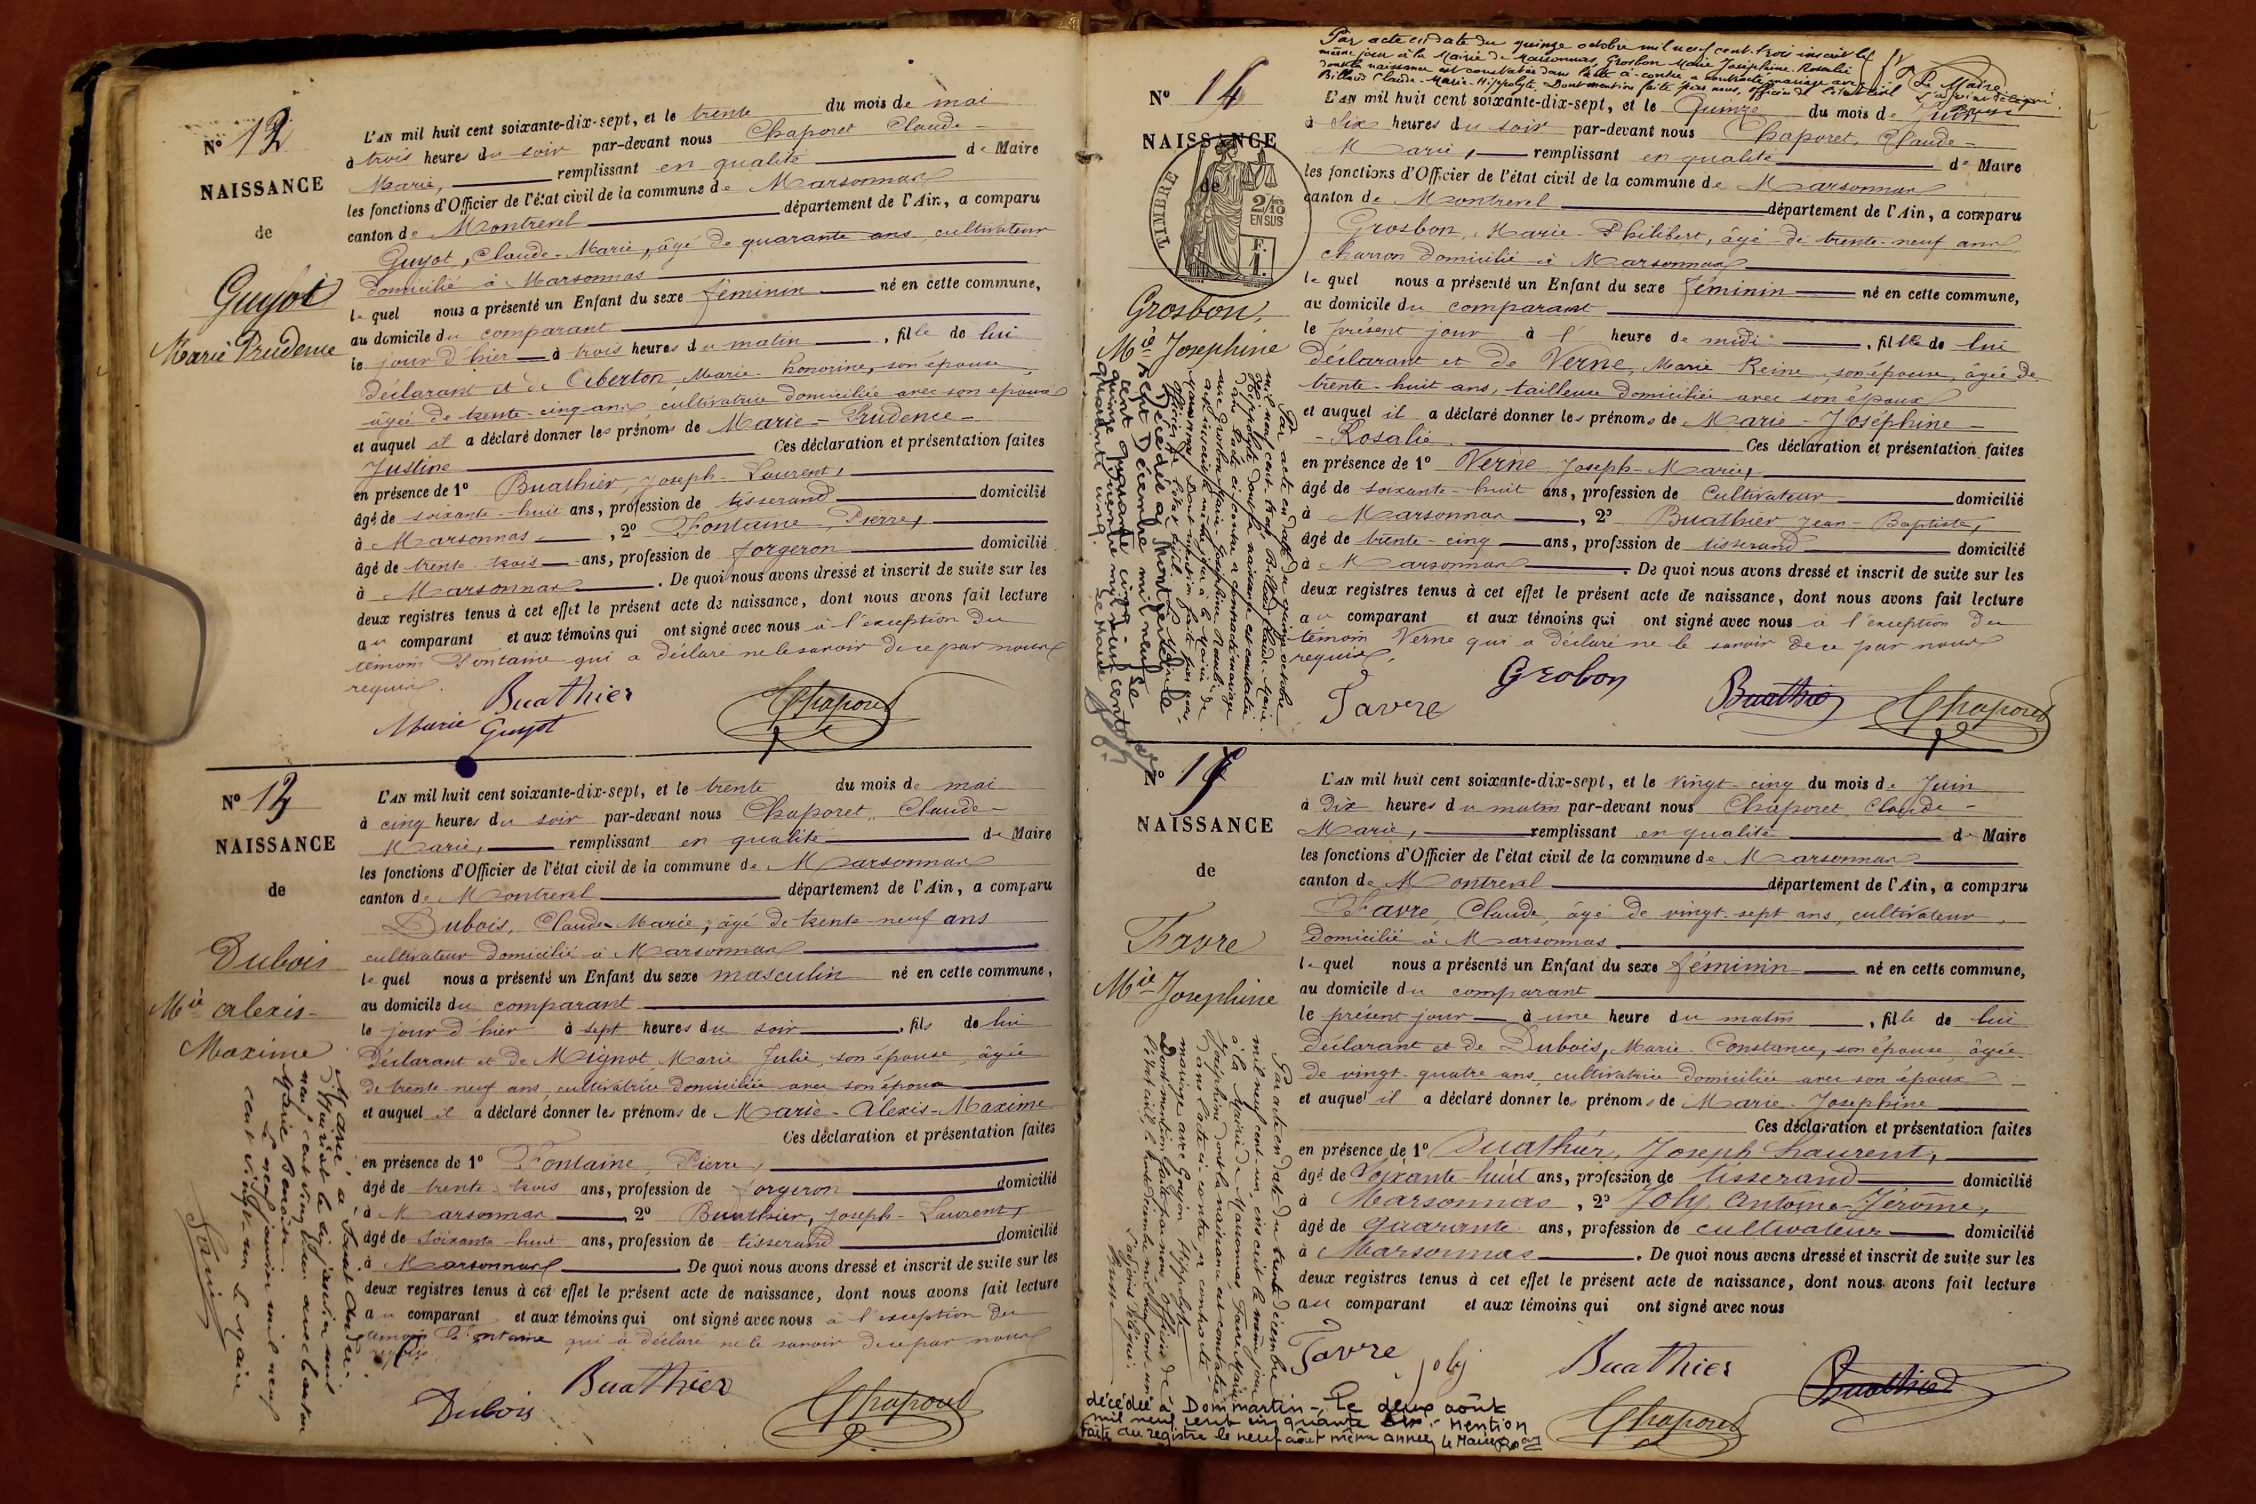 Nº 12
NAISSANCE
de
Guyot
Marie Prudence
L'AN mil huit cent soixante-dix-sept, et le trente du mois de mai
à trois heures du soir par-devant nous Chaporet Claude-
Marie, remplissant en qualité de Maire
les fonctions d'Officier de l'état civil de la commune de Marsonnas
canton de Montrevel département de l'Ain, a comparu
Guyot, Claude-Marie, âgé de quarante ans, cultivateur
domicilié à Marsonnas
lequel nous a présenté un Enfant du sexe féminin né en cette commune,
au domicile du comparant
le jour d'hier à trois heures du matin, fille de lui
déclarant et de Aberton, Marie-honorine, son épouse,
âgée de trente-cinq ans, cultivatrice domiciliée avec son époux
et auquel il a déclaré donner les prénoms de Marie-Prudence-
Justine Ces déclaration et présentation faites
en présence de 1º Buathier, Joseph-Laurent,
âgé de soixante-huit ans, profession de tisserand domicilié
à Marsonnas, 2º Fontaine, Pierre,
âgé de trente-trois ans, profession de forgeron domicilié
à Marsonnas. De quoi nous avons dressé et inscrit de suite sur les
deux registres tenus à cet effet le présent acte de naissance, dont nous avons fait lecture
au comparant et aux témoins qui ont signé avec nous à l'exception du
témoin Fontaine qui a déclaré ne le savoir de ce par nous
requis.
Buathier
Marie Guyot
Chaporet
Nº 13
NAISSANCE
de
Dubois
Mie Alexis-
Maxime
L'AN mil huit cent soixante-dix-sept, et le trente du mois de mai
à cinq heures du soir par-devant nous Chaporet, Claude-
Marie, remplissant en qualité de Maire
les fonctions d'Officier de l'état civil de la commune de Marsonnas
canton de Montrevel département de l'Ain, a comparu
Dubois, Claude Marie, âgé de trente-neuf ans
cultivateur domicilié à Marsonnas
lequel nous a présenté un Enfant du sexe masculin né en cette commune,
au domicile du comparant
le jour d'hier à sept heures du soir, fils de lui
déclarant et de Mignot, Marie Julie, son épouse, âgée
de trente-neuf ans, cultivatrice domiciliée avec son époux
et auquel il a déclaré donner les prénoms de Marie-Alexis-Maxime
Ces déclaration et présentation faites
en présence de 1º Fontaine, Pierre,
âgé de trente-trois ans, profession de forgeron domicilié
à Marsonnas, 2º Buathier, Joseph-Laurent,
âgé de soixante-huit ans, profession de tisserand domicilié
à Marsonnas. De quoi nous avons dressé et inscrit de suite sur les
deux registres tenus à cet effet le présent acte de naissance, dont nous avons fait lecture
au comparant et aux témoins qui ont signé avec nous à l'exception du
témoin Fontaine qui a déclaré ne le savoir de ce par nous
requis.
Marié à
janvier mil
neuf cent vingt
Marie
Le neuf janvier mil neuf
cent vingt un Le Maire
Buathier
Dubois
Chaporet
Par acte en date du quinze octobre mil neuf cent trois inscrit le
même jour à la Mairie de Marsonnas, Grosbon Marie Joséphine-Rosalie
dont la naissance est constatée dans l'acte ci-contre a contracté mariage avec
Billoud Claude-Marie-Hippolyte. Dont mention faite par nous, officier de l'état civil
Le Maire
Nº 14
NAISSANCE
de
TIMBRE
2/10
EN SUS
Grosbon,
Mie Josephine
L'AN mil huit cent soixante-dix-sept, et le Quinze du mois de Juin
à six heures du soir par-devant nous Chaporet, Claude-
Marie, remplissant en qualité de Maire
les fonctions d'Officier de l'état civil de la commune de Marsonnas
canton de Montrevel département de l'Ain, a comparu
Grosbon, Marie-Philibert, âgé de trente-neuf ans
charron domicilié à Marsonnas
lequel nous a présenté un Enfant du sexe féminin né en cette commune,
au domicile du comparant
le présent jour à l' heure de midi, fille de lui
déclarant et de Verne, Marie Reine, son épouse, âgée de
trente-huit ans, tailleuse domiciliée avec son époux
et auquel il a déclaré donner les prénoms de Marie-Joséphine-
-Rosalie Ces déclaration et présentation faites
en présence de 1º Verne Joseph-Marie,
âgé de soixante-huit ans, profession de Cultivateur domicilié
à Marsonnas, 2º Buathier Jean-Baptiste,
âgé de trente-cinq ans, profession de tisserand domicilié
à Marsonnas. De quoi nous avons dressé et inscrit de suite sur les
deux registres tenus à cet effet le présent acte de naissance, dont nous avons fait lecture
au comparant et aux témoins qui ont signé avec nous à l'exception du
témoin Verne qui a déclaré ne le savoir de ce par nous
requis.
Par acte en date du quinze octobre
mil neuf cent trois
dont la naissance est constatée
dans l'acte ci-contre a contracté mariage
Décédée à Montrevel le
sept Décembre mil neuf
cent quarante cinq
quinze Juin mil neuf cent
quarante cinq. Le Maire
Grobon
Favre
Buathier
Chaporet
Nº 15
NAISSANCE
de
Favre
Mie Josephine
L'AN mil huit cent soixante-dix-sept, et le vingt-cinq du mois de Juin
à Dix heures du matin par-devant nous Chaporet Claude-
Marie, remplissant en qualité de Maire
les fonctions d'Officier de l'état civil de la commune de Marsonnas
canton de Montrevel département de l'Ain, a comparu
Favre, Claude, âgé de vingt-sept ans, cultivateur
domicilié à Marsonnas
lequel nous a présenté un Enfant du sexe féminin né en cette commune,
au domicile du comparant
le présent jour à une heure du matin, fille de lui
déclarant et de Dubois, Marie-Constance, son épouse, âgée
de vingt-quatre ans, cultivatrice domiciliée avec son époux
et auquel il a déclaré donner les prénoms de Marie-Josephine
Ces déclaration et présentation faites
en présence de 1º Buathier, Joseph Laurent,
âgé de Soixante-huit ans, profession de tisserand domicilié
à Marsonnas, 2º Joly, Antoine-Jérôme,
âgé de quarante ans, profession de cultivateur domicilié
à Marsonnas. De quoi nous avons dressé et inscrit de suite sur les
deux registres tenus à cet effet le présent acte de naissance, dont nous avons fait lecture
au comparant et aux témoins qui ont signé avec nous
Par acte en date du trente décembre
mil neuf cent-un, inscrit le même jour
à la Mairie de Marsonnas, Favre Marie
Joséphine dont la naissance est constatée
dans l'acte ci-contre a contracté
mariage avec Goyon Hippolyte
Dont mention faite par nous, officier de
l'état civil, le trente décembre mil neuf cent un
Favre
joly
Buathier
Buathier
Chaporet
décédée à Dommartin-. Le deux août
mil neuf cent cinquante six.- Mention
faite au registre le neuf août même année, Le Maire